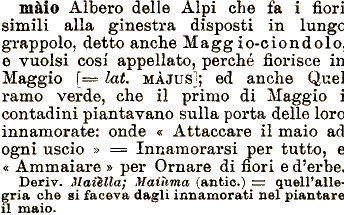 màio Albero delle Alpi che fa i fiori
simili alla ginestra disposti in lungo
grappolo, detto anche Maggio-ciondolo,
e vuolsi cosí appellato, perché fiorisce in
Maggio [= lat. MÀJUS]; ed anche Quel
ramo verde, che il primo di Maggio i
contadini piantavano sulla porta delle loro
innamorate: onde « Attaccare il maio ad
ogni uscio » = Innamorarsi per tutto, e
« Ammaiare » per Ornare di fiori e d'erbe.
Deriv. Maièlla; Maiùma (antic.) = quell'alle-
gria che si faceva dagli innamorati nel piantare
il maio.